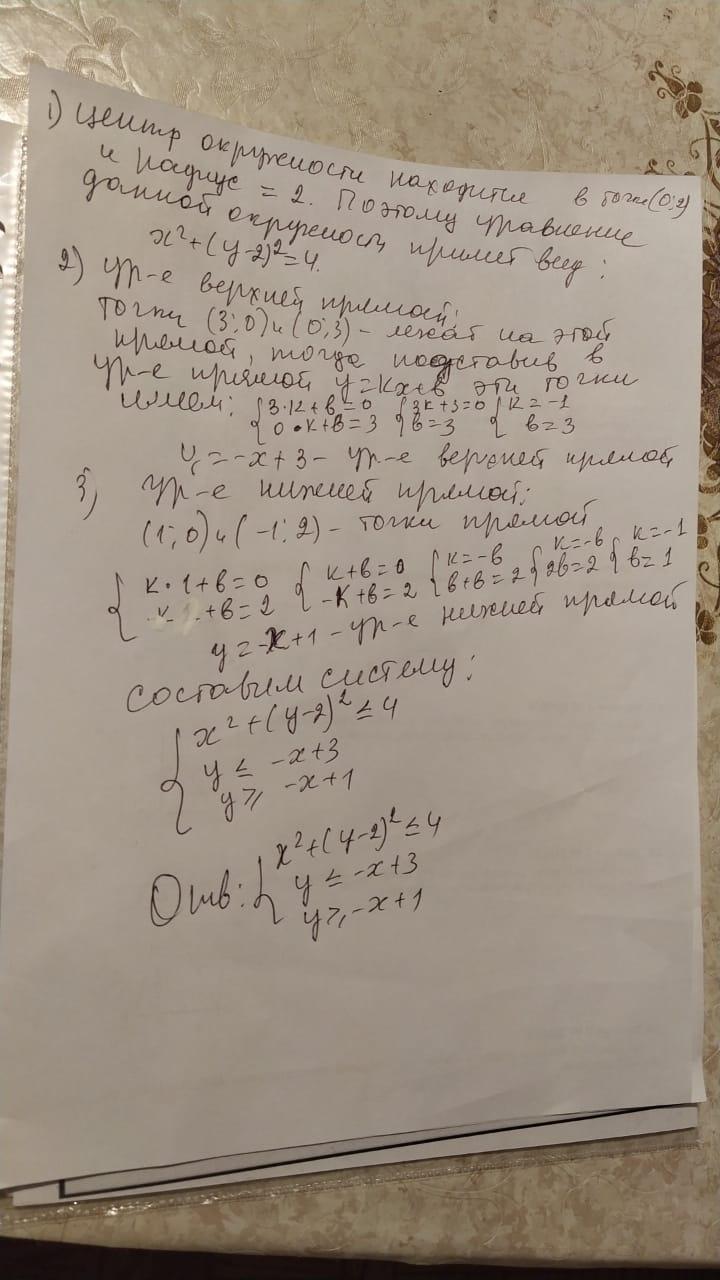 1) Центр окружности находится в точке (0;2)
и радиус = 2. Поэтому уравнение
данной окружности примет вид:
x²+(y-2)²=4.
2) Ур-е верхней прямой:
точки (3;0) и (0;3) - лежат на этой
прямой, тогда подставив в
ур-е прямой y=kx+b эти точки
имеем: {3·k+b=0 0·k+b=3 {3k+3=0 b=3 {k=-1 b=3
y=-x+3 - ур-е верхней прямой
3) Ур-е нижней прямой:
(1;0) и (-1;2) - точки прямой
{k·1+b=0 +b=2 {k+b=0 -k+b=2 {k=-b b+b=2 {k=-b 2b=2 {k=-1 b=1
y=-x+1 - ур-е нижней прямой
Составим систему:
{x²+(y-2)²≤4
y≤ -x+3
y⩾ -x+1
Отв: {x²+(y-2)²≤4
y≤-x+3
y⩾-x+1